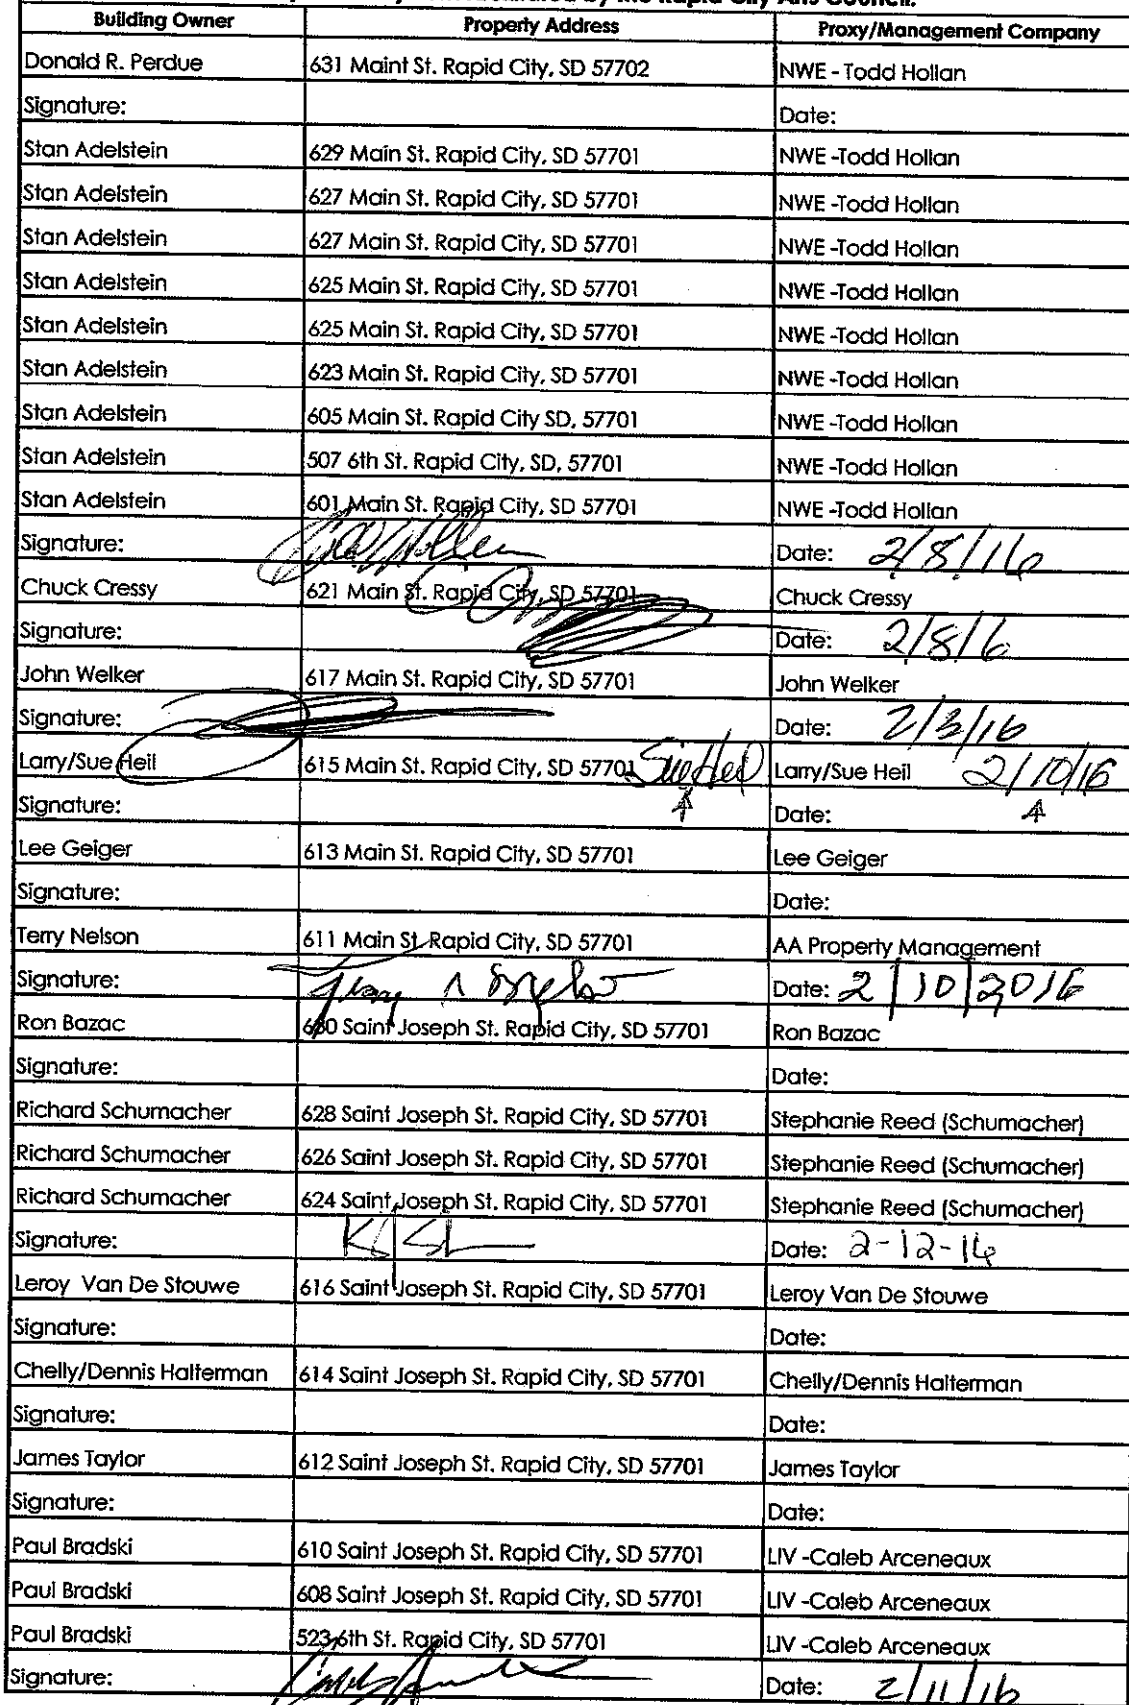 by the Rapid City Arts Council.
Building Owner Property Address Proxy/Management Company
Donald R. Perdue 631 Maint St. Rapid City, SD 57702 NWE - Todd Hollan
Signature: Date:
Stan Adelstein 629 Main St. Rapid City, SD 57701 NWE -Todd Hollan
Stan Adelstein 627 Main St. Rapid City, SD 57701 NWE -Todd Hollan
Stan Adelstein 627 Main St. Rapid City, SD 57701 NWE -Todd Hollan
Stan Adelstein 625 Main St. Rapid City, SD 57701 NWE -Todd Hollan
Stan Adelstein 625 Main St. Rapid City, SD 57701 NWE -Todd Hollan
Stan Adelstein 623 Main St. Rapid City, SD 57701 NWE -Todd Hollan
Stan Adelstein 605 Main St. Rapid City SD, 57701 NWE -Todd Hollan
Stan Adelstein 507 6th St. Rapid City, SD, 57701 NWE -Todd Hollan
Stan Adelstein 601 Main St. Rapid City, SD 57701 NWE -Todd Hollan
Signature: Date: 2/8/16
Chuck Cressy 621 Main St. Rapid City, SD 57701 Chuck Cressy
Signature: Date: 2/8/16
John Welker 617 Main St. Rapid City, SD 57701 John Welker
Signature: Date: 2/3/16
Larry/Sue Heil 615 Main St. Rapid City, SD 57701 Sue Heil Larry/Sue Heil 2/10/16
Signature: Date:
Lee Geiger 613 Main St. Rapid City, SD 57701 Lee Geiger
Signature: Date:
Terry Nelson 611 Main St. Rapid City, SD 57701 AA Property Management
Signature: Date: 2/10/2016
Ron Bazac 630 Saint Joseph St. Rapid City, SD 57701 Ron Bazac
Signature: Date:
Richard Schumacher 628 Saint Joseph St. Rapid City, SD 57701 Stephanie Reed (Schumacher)
Richard Schumacher 626 Saint Joseph St. Rapid City, SD 57701 Stephanie Reed (Schumacher)
Richard Schumacher 624 Saint Joseph St. Rapid City, SD 57701 Stephanie Reed (Schumacher)
Signature: Date: 2-12-16
Leroy Van De Stouwe 616 Saint Joseph St. Rapid City, SD 57701 Leroy Van De Stouwe
Signature: Date:
Chelly/Dennis Halterman 614 Saint Joseph St. Rapid City, SD 57701 Chelly/Dennis Halterman
Signature: Date:
James Taylor 612 Saint Joseph St. Rapid City, SD 57701 James Taylor
Signature: Date:
Paul Bradski 610 Saint Joseph St. Rapid City, SD 57701 LIV -Caleb Arceneaux
Paul Bradski 608 Saint Joseph St. Rapid City, SD 57701 LIV -Caleb Arceneaux
Paul Bradski 523 6th St. Rapid City, SD 57701 LIV -Caleb Arceneaux
Signature: Date: 2/11/16